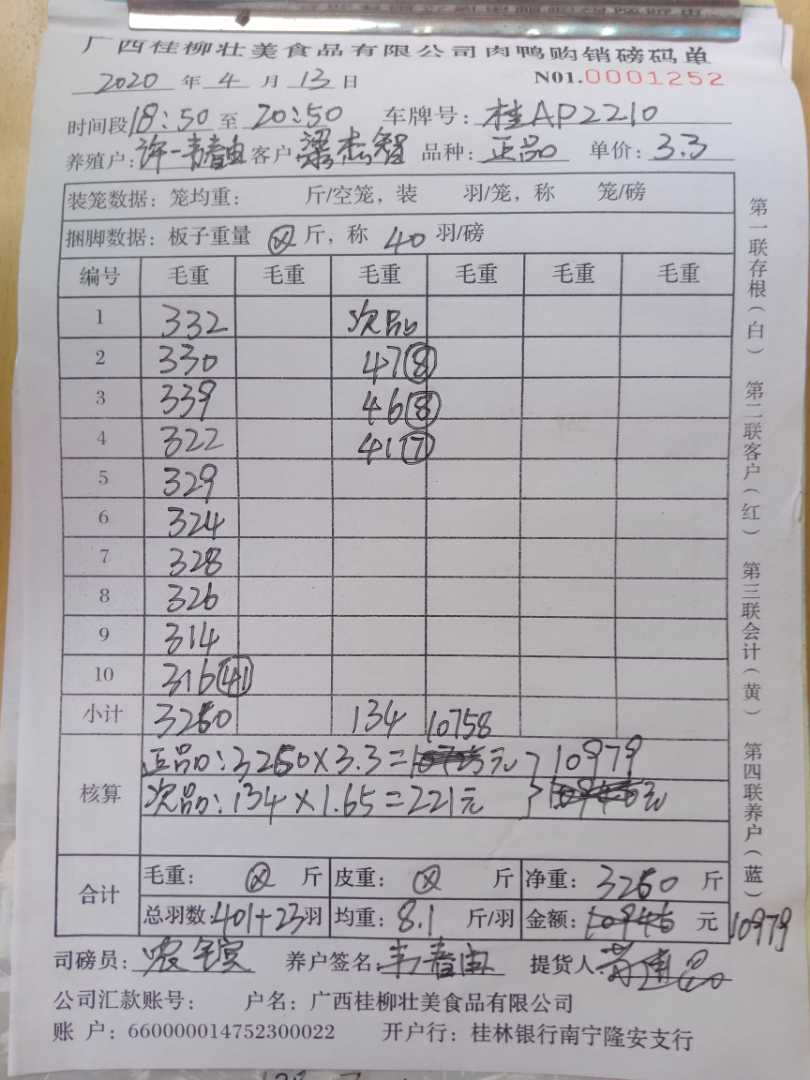 广西桂柳壮美食品有限公司肉鸭购销磅码单
2020 年 4 月 13 日 N01.0001252
时间段 18:50 至 20:50 车牌号: 桂AP2210
养殖户: 许一韦春由 客户 梁杰智 品种: 正品 单价: 3.3
装笼数据: 笼均重: 斤/空笼, 装 羽/笼, 称 笼/磅
捆脚数据: 板子重量 斤, 称 40 羽/磅
编号 毛重 毛重 毛重 毛重 毛重 毛重
1 332 次品
2 330 47 ⑧
3 339 46 ⑧
4 322 41 ⑦
5 329
6 324
7 328
8 326
9 314
10 316 ㊶
小计 3260 134 10758
核算 正品: 3260×3.3= 元 10979
次品: 134×1.65=221元 元
合计 毛重: 斤 皮重: 斤 净重: 3260 斤
总羽数: 401+23 羽 均重: 8.1 斤/羽 金额: 10946 元 10979
司磅员: 养户签名: 韦春由 提货人
公司汇款账号: 户名: 广西桂柳壮美食品有限公司
账 户: 660000014752300022 开户行: 桂林银行南宁隆安支行
第一联存根(白) 第二联客户(红) 第三联会计(黄) 第四联养户(蓝)